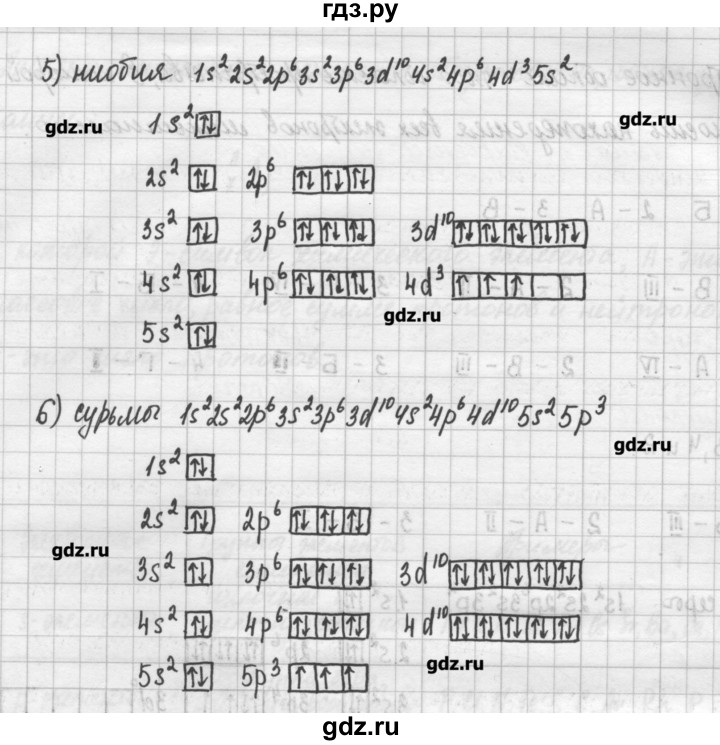 гдз.ру
5) ниобия 1s²2s²2p⁶3s²3p⁶3d¹⁰4s²4p⁶4d³5s²
gdz.ru
1s² ↑↓
gdz.ru
2s² ↑↓ 2p⁶ ↑↓ ↑↓ ↑↓
3s² ↑↓ 3p⁶ ↑↓ ↑↓ ↑↓ 3d¹⁰ ↑↓ ↑↓ ↑↓ ↑↓ ↑↓
4s² ↑↓ 4p⁶ ↑↓ ↑↓ ↑↓ 4d³ ↑ ↑ ↑
gdz.ru
5s² ↑↓
6) сурьмы 1s²2s²2p⁶3s²3p⁶3d¹⁰4s²4p⁶4d¹⁰5s²5p³
gdz.ru
1s² ↑↓
2s² ↑↓ 2p⁶ ↑↓ ↑↓ ↑↓
gdz.ru
3s² ↑↓ 3p⁶ ↑↓ ↑↓ ↑↓ 3d¹⁰ ↑↓ ↑↓ ↑↓ ↑↓ ↑↓
4s² ↑↓ 4p⁶ ↑↓ ↑↓ ↑↓ 4d¹⁰ ↑↓ ↑↓ ↑↓ ↑↓ ↑↓
gdz.ru
5s² ↑↓ 5p³ ↑ ↑ ↑
gdz.ru